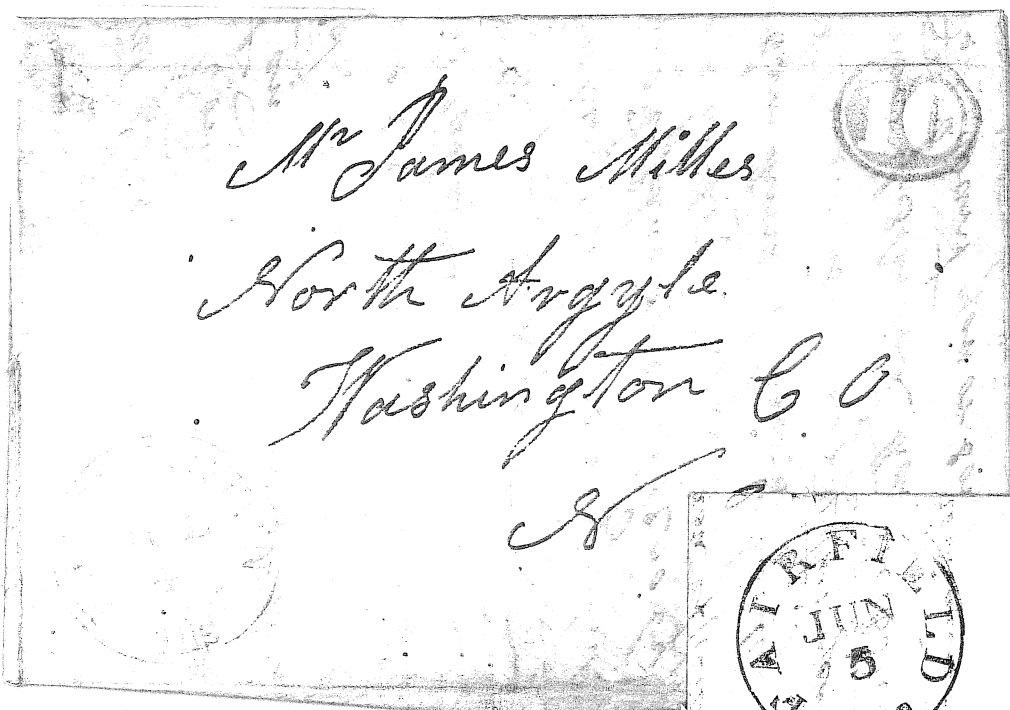 10
Mr James Milles
North Argyle
Washington C O
N
FAIRFIELD
JUN
5